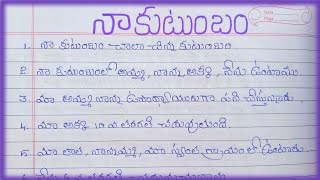 నా కుటుంబం
1. నా కుటుంబం చాలా చిన్న కుటుంబం
2. నా కుటుంబంలో అమ్మ, నాన్న, అక్క, నేను ఉంటాము.
3. మా అమ్మ నాన్న ఉపాధ్యాయులుగా పని చేస్తున్నారు.
4. మా అక్క 10 వ తరగతి చదువుతుంది.
5. మా తాత, నానమ్మ, మా స్వంత గ్రామం లో ఉంటారు.